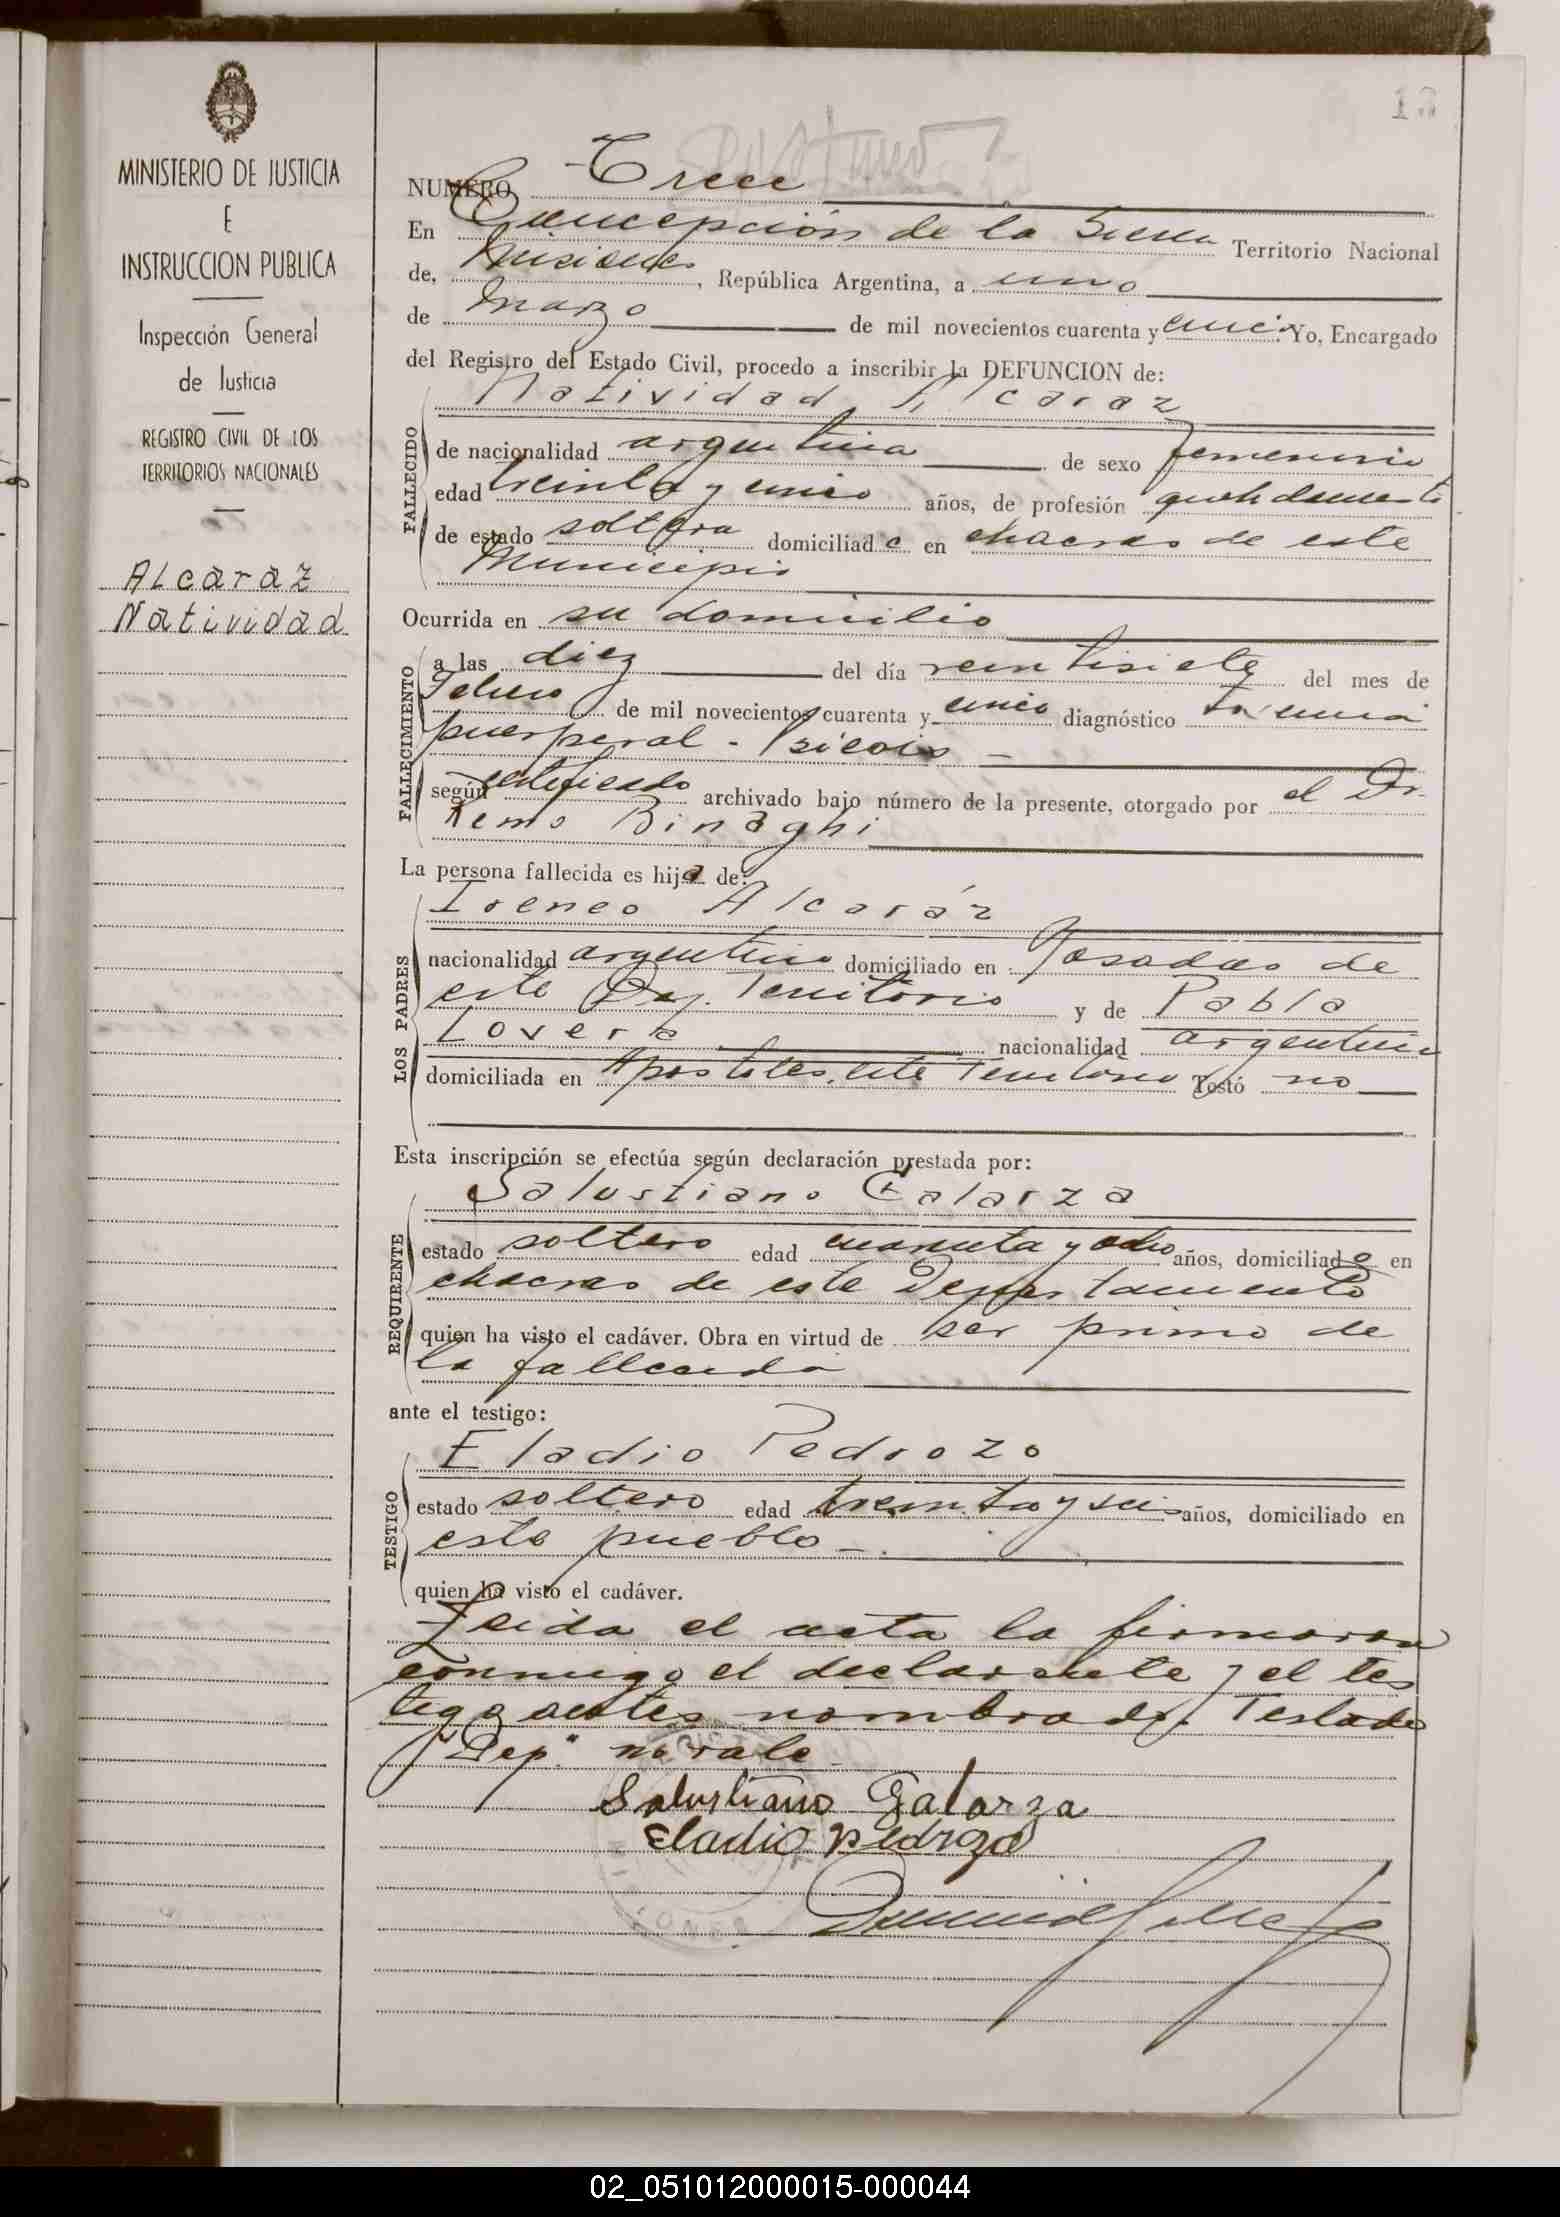 13
MINISTERIO DE JUSTICIA
E
INSTRUCCION PUBLICA
Inspección General
de Justicia
REGISTRO CIVIL DE LOS
TERRITORIOS NACIONALES
ALcaraz
Natividad
NUMERO Trece
En Concepción de la Sierra Territorio Nacional
de, Misiones, República Argentina, a uno
de marzo de mil novecientos cuarenta y cinco Yo, Encargado
del Registro del Estado Civil, procedo a inscribir la DEFUNCION de:
FALLECIDO
Natividad Alcaraz
de nacionalidad argentina de sexo femenino
edad treinta y cinco años, de profesión
de estado soltera domiciliada en chacras de este
Municipio
Ocurrida en su domicilio
FALLECIMIENTO
a las diez del día veintisiete del mes de
Febrero de mil novecientos cuarenta y cinco diagnóstico
puerperal -
según certificado archivado bajo número de la presente, otorgado por el Dr.
Remo Binaghi
La persona fallecida es hija de:
LOS PADRES
Ireneo Alcaráz
nacionalidad argentino domiciliado en Posadas de
este Dep. Territorio y de Pabla
Lovera nacionalidad argentina
domiciliada en Apostoles, este Territorio Testó no
Esta inscripción se efectúa según declaración prestada por:
REQUIRENTE
Salustiano Galarza
estado soltero edad cuarenta y ocho años, domiciliado en
chacras de este Departamento
quien ha visto el cadáver. Obra en virtud de ser primo de
la fallecida
ante el testigo:
TESTIGO
Eladio Pedrozo
estado soltero edad treinta y seis años, domiciliado en
este pueblo -.
quien ha visto el cadáver.
Leida el acta la firmaron
conmigo el declarante y el tes
tigo antes nombrado. Testado
"Dep." no vale
Salustiano Galarza
Eladio Pedrozo
02_051012000015-000044